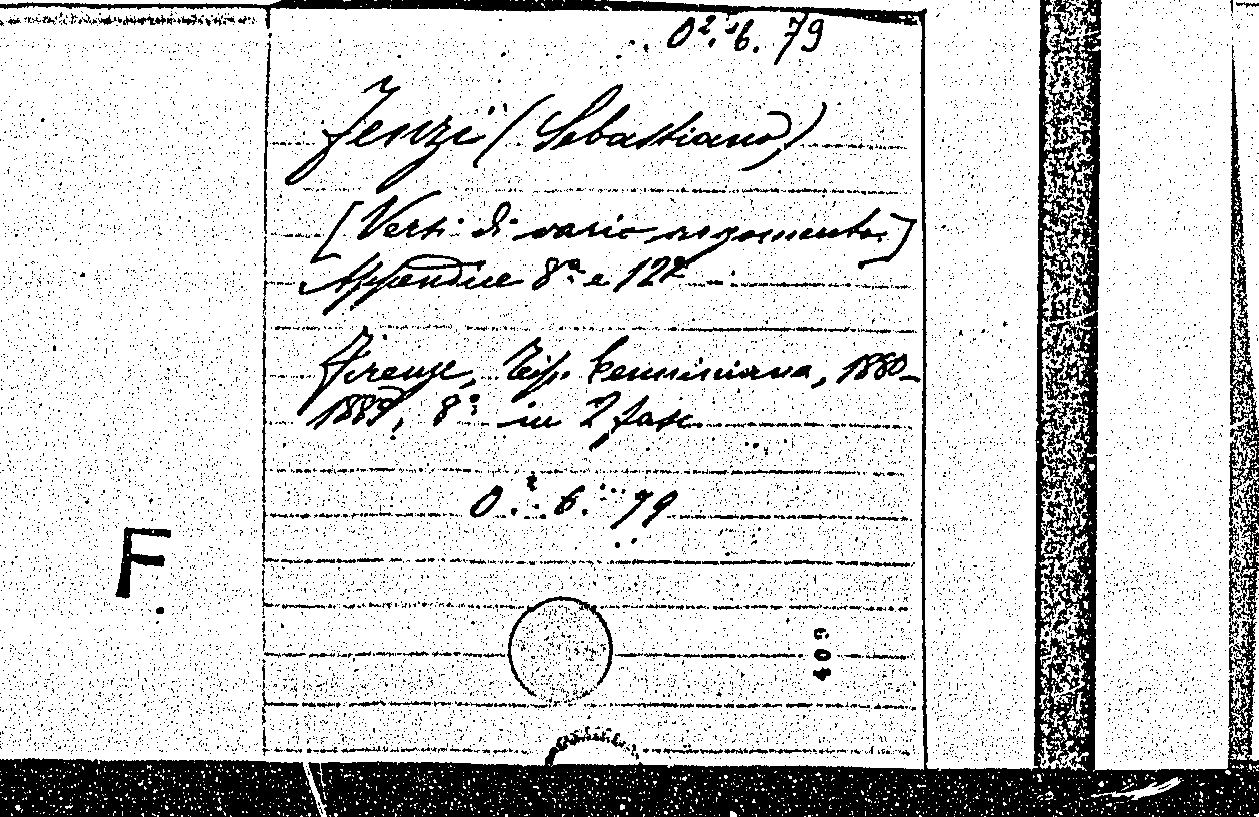 O². 6. 79
Fenzi (Sebastiano)
[Versi di vario argomento.]
Appendice 8ª e 12ª
Firenze, Tip. Benciniana, 1880-
1889, 8º in 2 fasc.
O.² 6. 79
F.
409